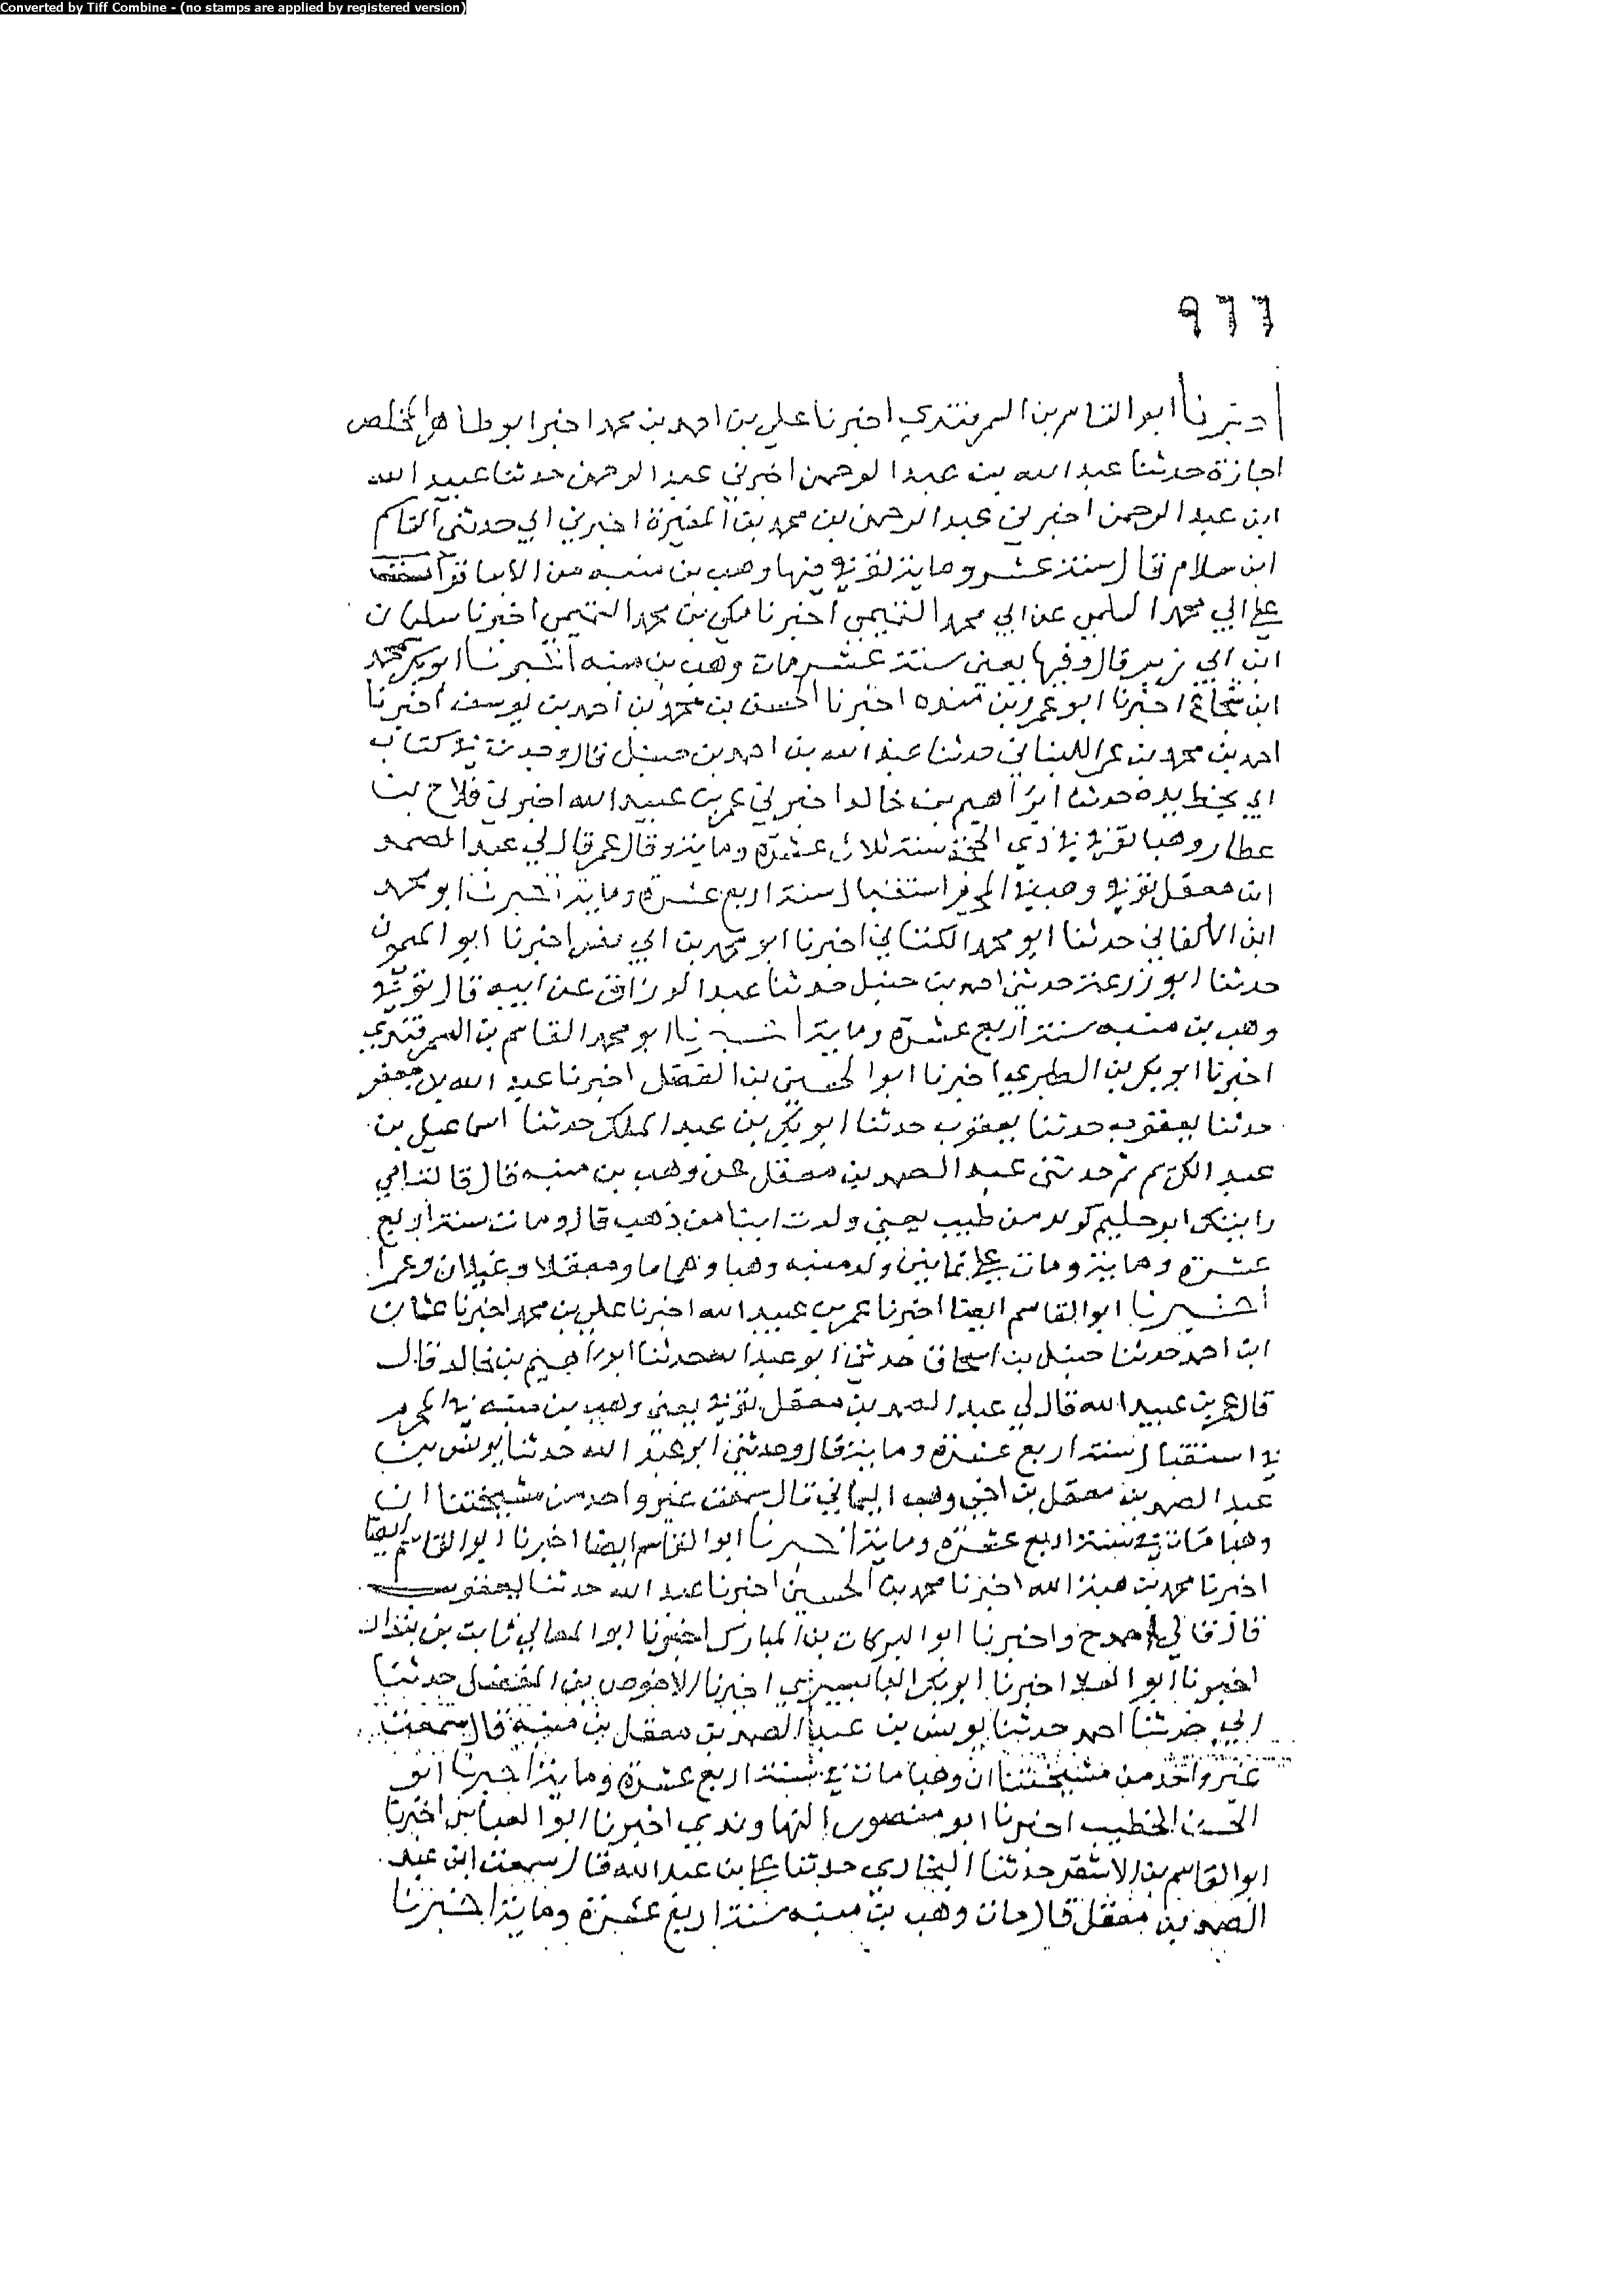 Converted by Tiff Combine - (no stamps are applied by registered version)
٩٦٦
اخبرنا ابو القاسم بن السمرقندي اخبرنا علي بن احمد بن محمد اخبرا ابو طاهر المخلص
اجازة حدثنا عبد الله بن عبد الرحمن اخبرني عبد الرحمن حدثنا عبيد الله
ابن عبد الرحمن اخبرني عبد الرحمن بن محمد بن المغيرة اخبرني ابي حدثني القاسم
ابن سلام قال سنة عشر وماية توفي فيها وهب بن منبه من الابنا قرأت
على ابي محمد السلمي عن ابي محمد التميمي اخبرنا مكي بن محمد التميمي اخبرنا سليمان
ابن ابي زبر قال وفيها يعني سنة عشر مات وهب بن منبه اخبرنا ابو بكر محمد
ابن شجاع اخبرنا ابو عمرو بن منده اخبرنا الحسن بن محمد بن احمد بن يوسف اخبرنا
احمد بن محمد بن عمر اللبناني حدثنا عبد الله بن احمد بن حنبل قال وجدت في كتاب
ابي بخط يده حدثنا ابراهيم بن خالد اخبرني عمر بن عبيد الله اخبرني فلاح بن
عطا وهبا توفي في ذي الحجة سنة ثلاث عشرة وماية وقال عمر قال لي عبد الصمد
ابن معقل توفي وهب في المحرم استقبال سنة اربع عشرة وماية اخبرنا ابو محمد
ابن الاكفاني حدثنا ابو محمد الكتاني اخبرنا ابو محمد بن ابي نصر اخبرنا ابو الميمون
حدثنا ابو زرعة حدثني احمد بن حنبل حدثنا عبد الرزاق عن ابيه قال توفي
وهب بن منبه سنة اربع عشرة وماية اخبرنا ابو محمد القاسم بن السمرقندي
اخبرنا ابو بكر بن الطبري اخبرنا ابو الحسين بن الفضل اخبرنا عبد الله بن جعفر
حدثنا يعقوب حدثنا يعقوب حدثنا ابو بكر بن عبد الملك حدثنا اسماعيل بن
عبد الكريم حدثني عبد الصمد بن معقل عن وهب بن منبه قال قالت امي
رايت ابو حليم كولد من طيب يعني ولدت ابنا من ذهب قال ومات سنة اربع
عشرة وماية ومات على ثمانين ولد منبه وهبا وهماما ومعقلا وغيلان وعمرا
اخبرنا ابو القاسم ايضا اخبرنا عمر بن عبيد الله اخبرنا علي بن محمد اخبرنا عثمان
ابن احمد حدثنا حنبل بن اسحاق حدثني ابو عبد الله حدثنا ابراهيم بن خالد قال
قال عمر بن عبيد الله قال لي عبد الصمد بن معقل توفي يعني وهب بن منبه في المحرم
في استقبال سنة اربع عشرة وماية قال وحدثني ابو عبد الله حدثنا يونس بن
عبد الصمد بن معقل بن اخي وهب اليماني قال سمعت غير واحد من مشيختنا ان
وهبا مات في سنة اربع عشرة وماية اخبرنا ابو القاسم ايضا اخبرنا ابو القاسم ايضا
اخبرنا محمد بن هبة الله اخبرنا محمد بن الحسين اخبرنا عبد الله حدثنا يعقوب
قال قال لي احمد ح واخبرنا ابو البركات بن المبارك اخبرنا ابو المعالي ثابت بن بندار
اخبرنا ابو العلا اخبرنا ابو بكر البابسيري اخبرنا الاحوص بن المفضل حدثنا
ابي حدثنا احمد حدثنا يونس بن عبد الصمد بن معقل بن منبه قال سمعت
غير واحد من مشيختنا ان وهبا مات في سنة اربع عشرة وماية اخبرنا ابو
الحسن الخطيب اخبرنا ابو منصور النهاوندي اخبرنا ابو العباس اخبرنا
ابو القاسم بن الاشقر حدثنا البخاري حدثنا علي بن عبد الله قال سمعت ابن عبد
الصمد بن معقل قال مات وهب بن منبه سنة اربع عشرة وماية اخبرنا